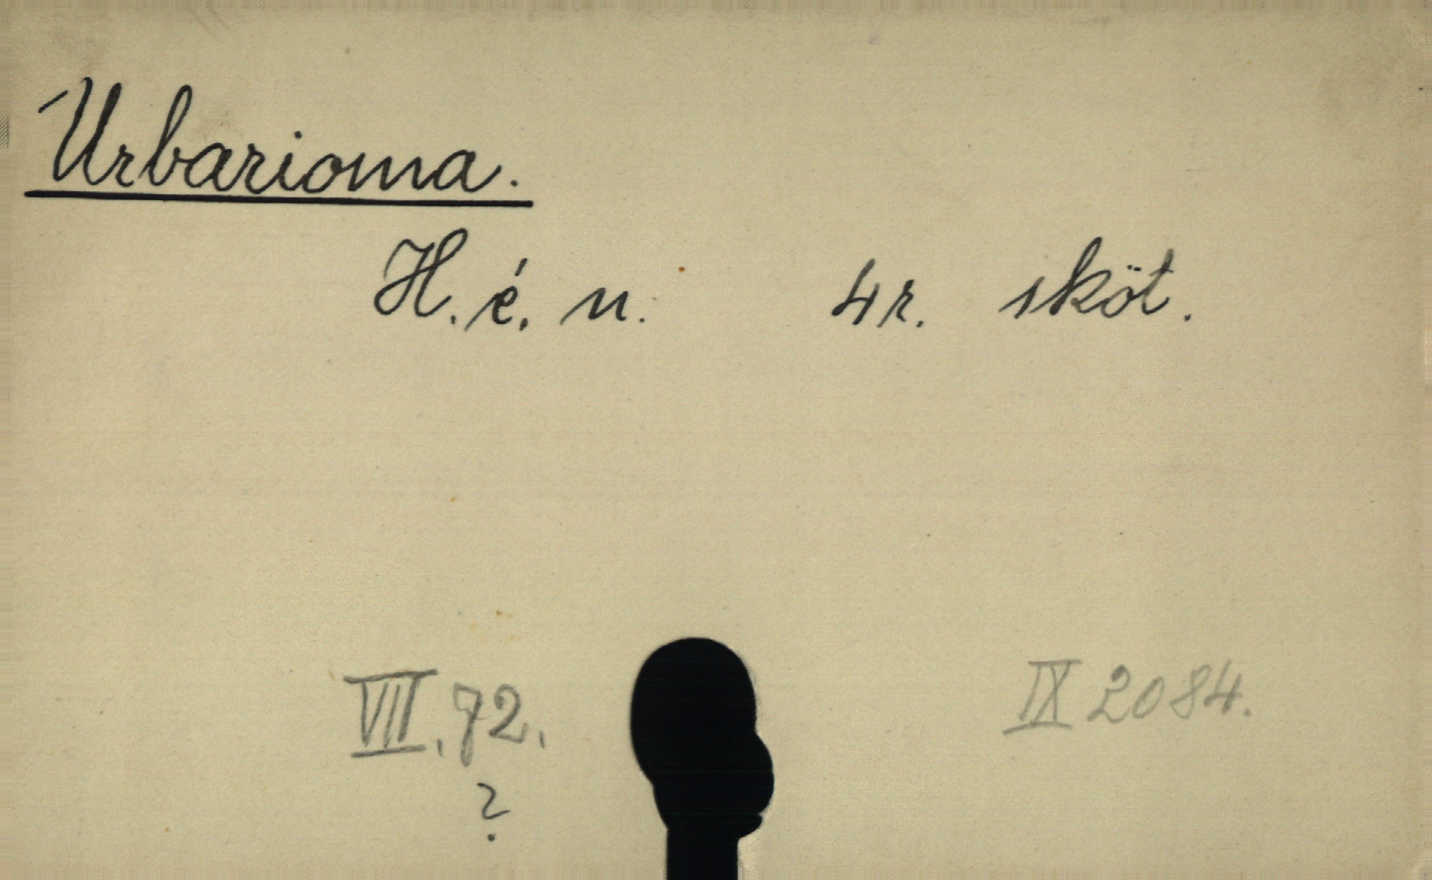 Urbarioma.
H. é. n. 4r. sköt.
VII. 72. IX 2084.
?